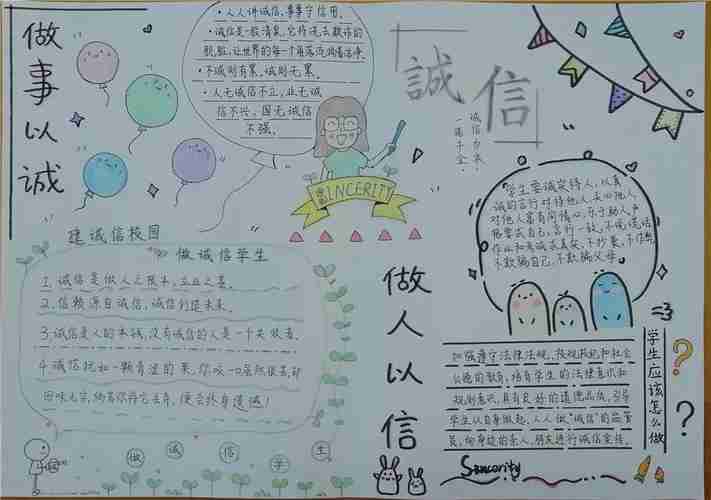 做事以诚
·人人讲诚信,事事守信用。
·诚信是一股清泉,它将洗去欺诈的
肮脏,让世界的每一个角落流淌着洁净。
·不诚则有累,诚则无累。
·人无诚信不立,业无诚
信不兴,国无诚信
不强。
誠信
诚信为本,
一诺千金。
SINCERITY
学生要诚实待人,以真
诚的言行对待他人、关心他人,
对他人富有同情心,乐于助人。严
格要求自己,言行一致,不说谎话,
作业和考试求真实,不抄袭,不作弊,
不欺骗自己,不欺骗父母
建诚信校园
做诚信学生
1.诚信是做人之根本,立业之基。
2.信赖源自诚信,诚信创造未来。
3.诚信是人的本钱,没有诚信的人是一个失败者。
4.诚信犹如一颗青涩的果,你咬一口虽然很苦,却
回味无穷,倘若你将它丢弃,便会终身遗憾!
做诚信学生
做人以信
学生应该怎么做
加强遵守法律法规、校规校纪和社会
公德的教育,培育学生的法律意识和
规则意识,具有良好的道德品质,引导
学生从自身做起,人人做“诚信”的监管
员,向身边的亲人、朋友进行诚信宣传。
Sincerity